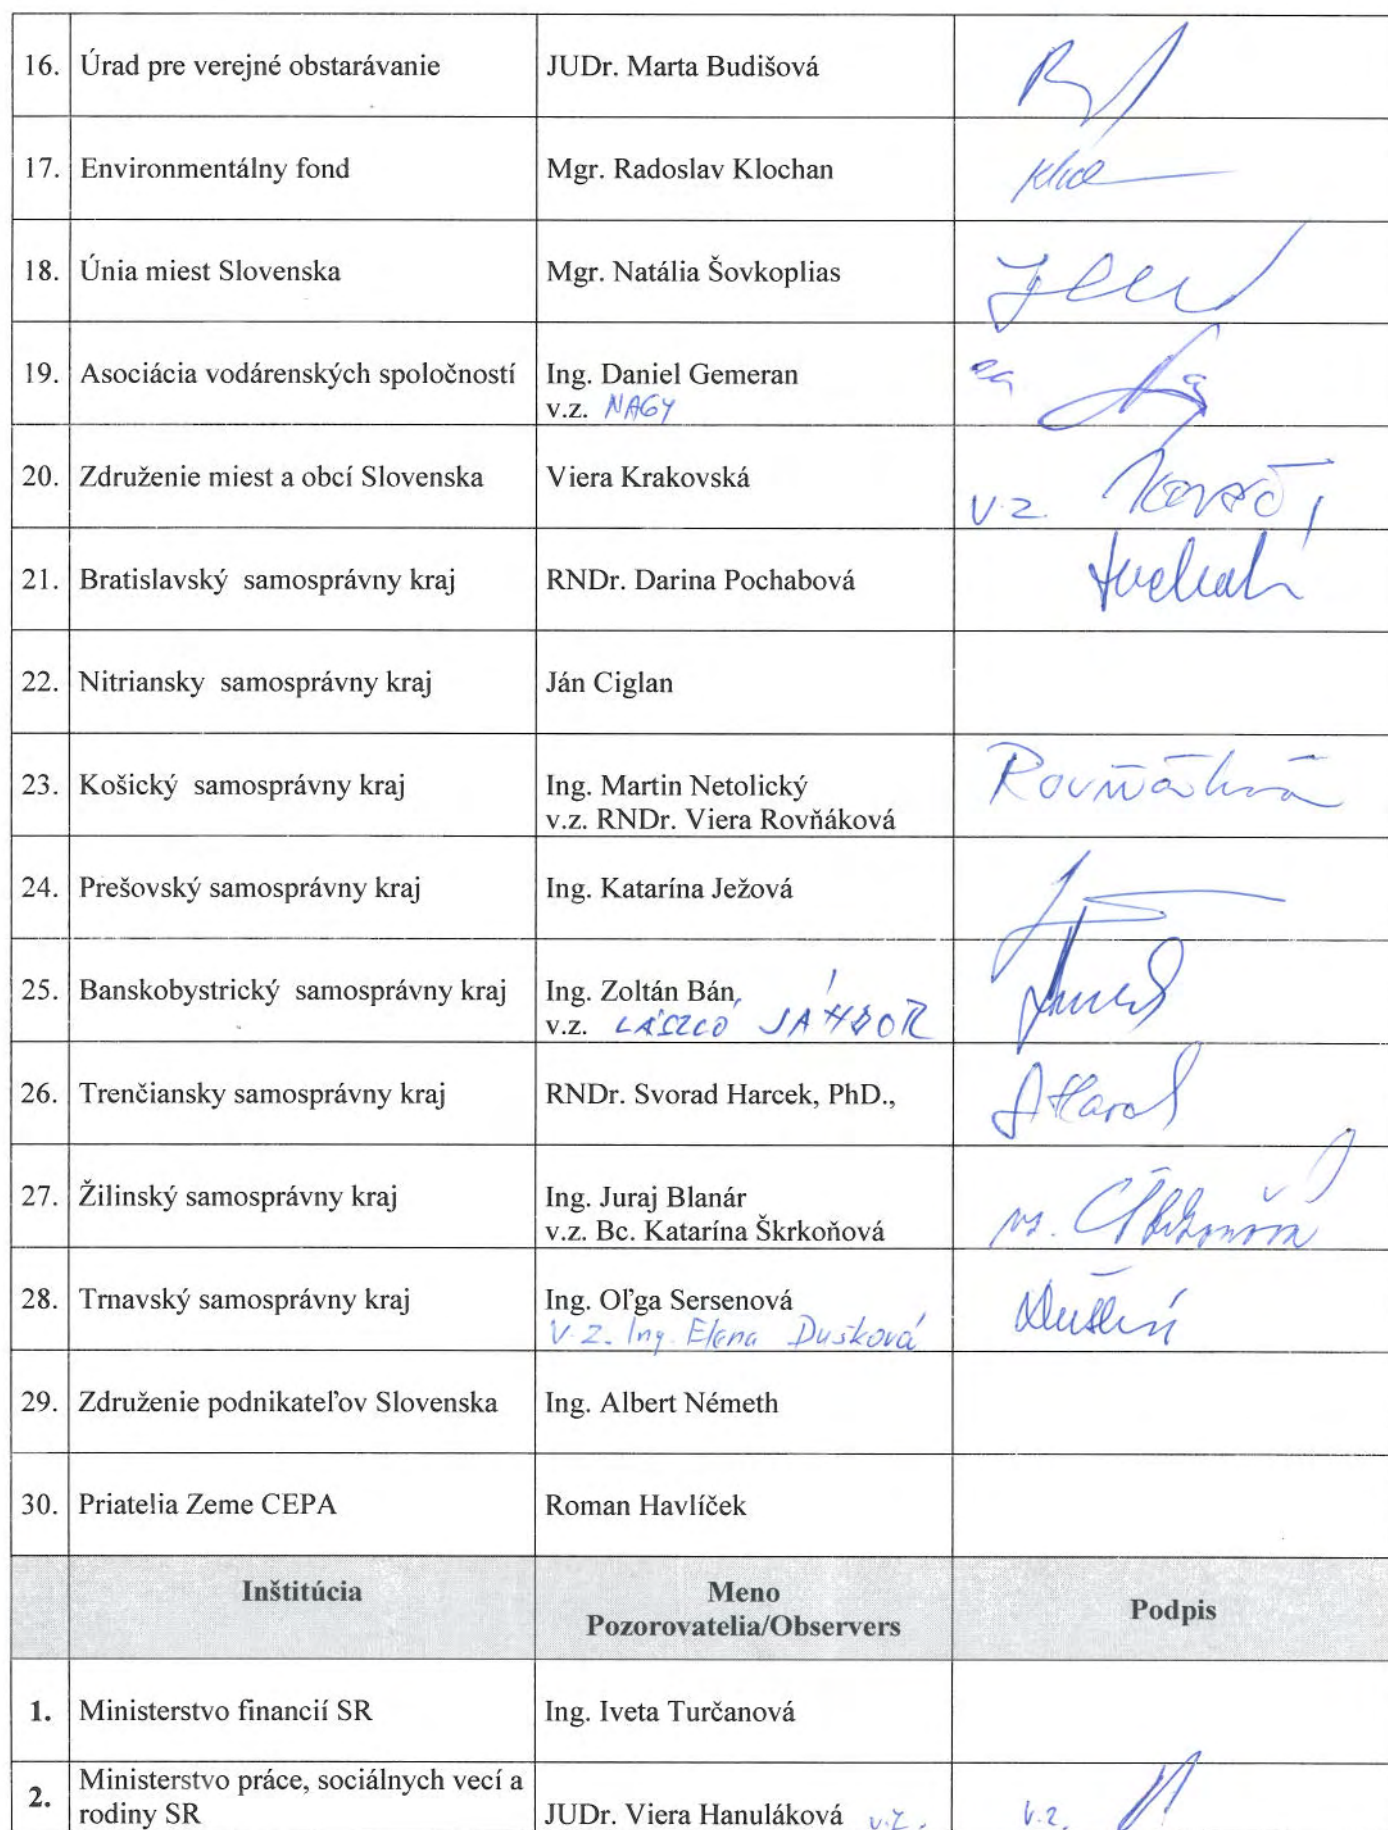 16. Úrad pre verejné obstarávanie JUDr. Marta Budišová
17. Environmentálny fond Mgr. Radoslav Klochan
18. Únia miest Slovenska Mgr. Natália Šovkoplias
19. Asociácia vodárenských spoločností Ing. Daniel Gemeran
v.z. NAGY
20. Združenie miest a obcí Slovenska Viera Krakovská v.z.
21. Bratislavský samosprávny kraj RNDr. Darina Pochabová
22. Nitriansky samosprávny kraj Ján Ciglan
23. Košický samosprávny kraj Ing. Martin Netolický Rovňáková
v.z. RNDr. Viera Rovňáková
24. Prešovský samosprávny kraj Ing. Katarína Ježová
25. Banskobystrický samosprávny kraj Ing. Zoltán Bán,
v.z. LÁSZLÓ SÁNDOR
26. Trenčiansky samosprávny kraj RNDr. Svorad Harcek, PhD.,
27. Žilinský samosprávny kraj Ing. Juraj Blanár
v.z. Bc. Katarína Škrkoňová
28. Trnavský samosprávny kraj Ing. Oľga Sersenová
v.z. Ing. Elena Dušková
29. Združenie podnikateľov Slovenska Ing. Albert Németh
30. Priatelia Zeme CEPA Roman Havlíček
Inštitúcia Meno Podpis
Pozorovatelia/Observers
1. Ministerstvo financií SR Ing. Iveta Turčanová
2. Ministerstvo práce, sociálnych vecí a
rodiny SR JUDr. Viera Hanuláková v.z. v.z.